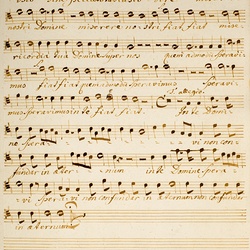 nostri Domine miserere nostri fiat fiat mise
ricordia tua Domine super nos quemadmodum speravi
mus fiat fiat quemadmodum speravimus speravi
mus speravimus in te. In te Domi
ne spera vi non con
fundar in aeter num in te Domine spera
vi spera vi non confundar in aeternum non confundar
in aeternum